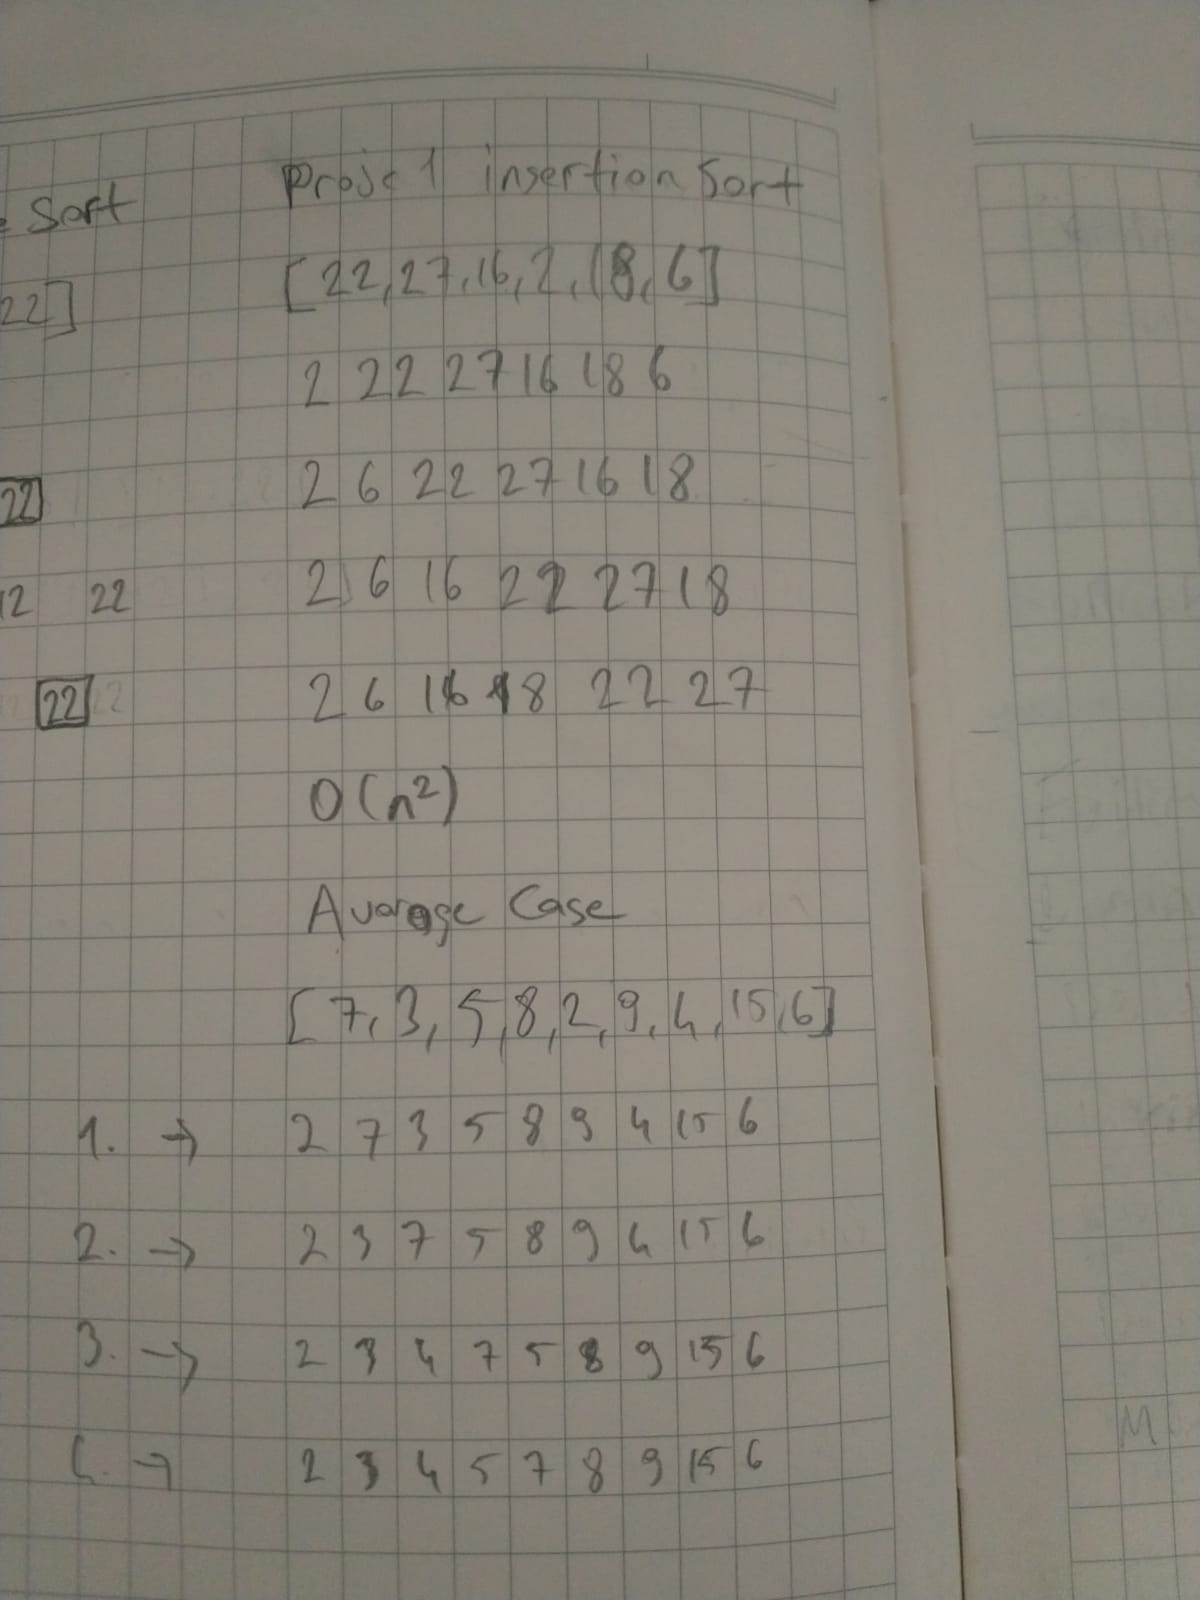 Sort
22]
22
12 22
22
Proje 1 insertion Sort
[22,27,16,2,18,6]
2 22 27 16 18 6
2 6 22 27 16 18
2 6 16 22 27 18
2 6 16 18 22 27
O(n²)
Avarage Case
[7,3,5,8,2,9,4,15,6]
1. → 2 7 3 5 8 9 4 15 6
2. → 2 3 7 5 8 9 4 15 6
3. → 2 3 4 7 5 8 9 15 6
4. → 2 3 4 5 7 8 9 15 6
M